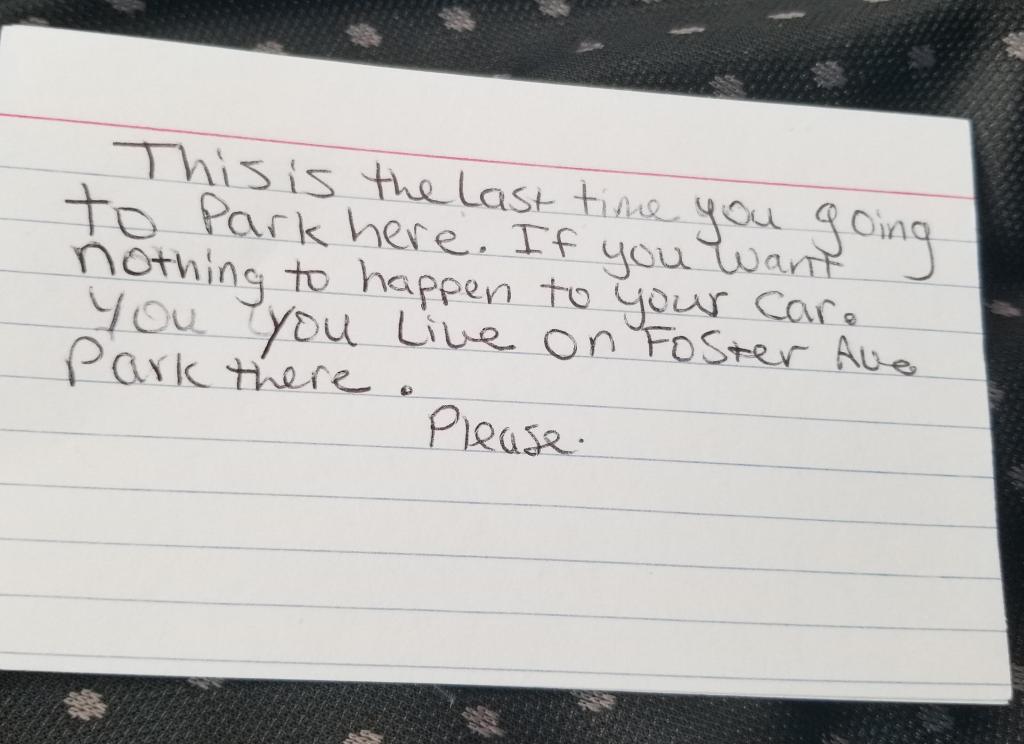 This is the last time you going
to Park here. If you want
nothing to happen to your car.
You you Live on Foster Ave
Park there.
Please.